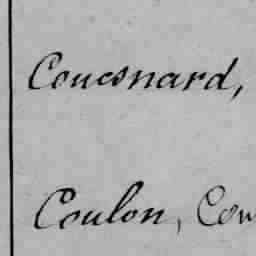 Couesnard,
Coulon, Cou